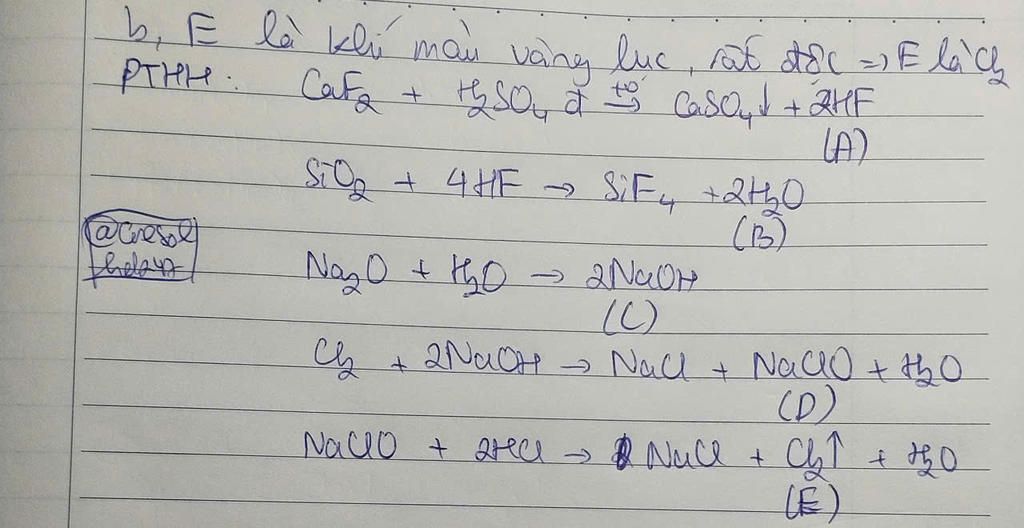 b, E là khí màu vàng lục, rất độc => E là Cl₂
PTHH: CaF₂ + H₂SO₄ đ t⁰→ CaSO₄↓ + 2HF
(A)
SiO₂ + 4HF → SiF₄ + 2H₂O
(B)
@cresol
Na₂O + H₂O → 2NaOH
(C)
Cl₂ + 2NaOH → NaCl + NaClO + H₂O
(D)
NaClO + 2HCl → NaCl + Cl₂↑ + H₂O
(E)